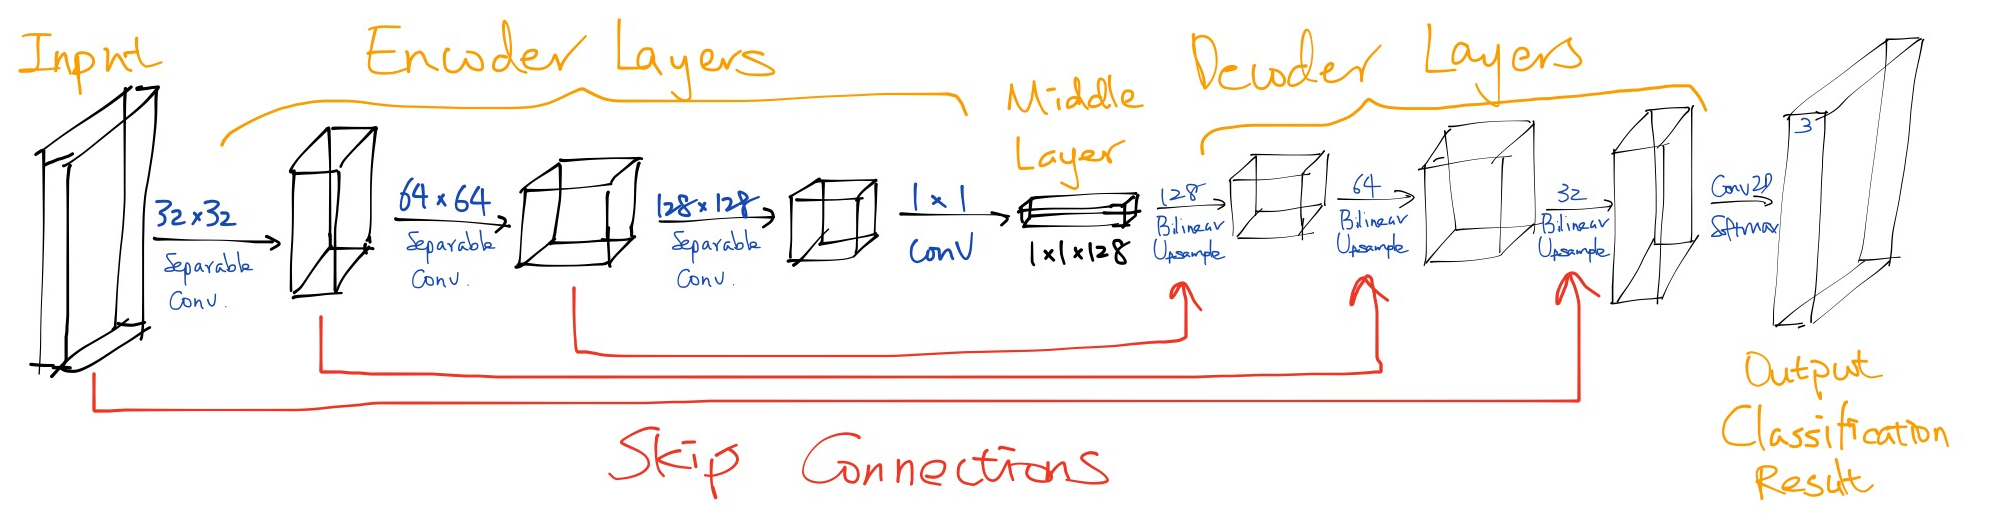 Input
Encoder Layers
Middle
Layer
Decoder Layers
32×32
Separable
Conv.
64×64
Separable
Conv.
128×128
Separable
Conv.
1×1
Conv
1×1×128
128
Bilinear
Upsample
64
Bilinear
Upsample
32
Bilinear
Upsample
Conv2D
Softmax
3
Output
Classification
Result
Skip Connections